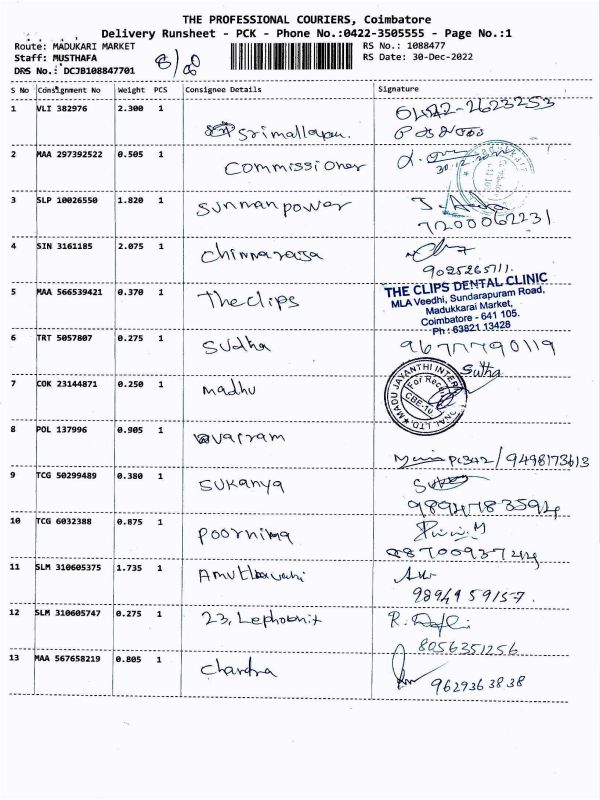 THE PROFESSIONAL COURIERS, Coimbatore
Delivery Runsheet - PCK - Phone No.:0422-3505555 - Page No.:1
Route: MADUKARI MARKET RS No.: 1088477
Staff: MUSTHAFA RS Date: 30-Dec-2022
DRS No.: DCJB108847701
S No Consignment No Weight PCS Consignee Details Signature
1 VLI 382976 2.300 1 Srimallayan. 0422-2623253
2 MAA 297392522 0.505 1 Commissioner
3 SLP 10026550 1.820 1 Sunmanpower
7200062231
4 SIN 3161185 2.075 1 Chinnarasa
9025265711.
5 MAA 566539421 0.370 1 The clips
THE CLIPS DENTAL CLINIC
MLA Veedhi, Sundarapuram Road,
Madukkarai Market,
Coimbatore - 641 105.
Ph : 63821 13428
6 TRT 5057807 0.275 1 Sudha 9677790119
Sutha
7 COK 23144871 0.250 1 Madhu
MADU JAYANTHI INTER
For Rece
CBE-10
8 POL 137996 0.905 1 Vairam
PC342/9498173613
9 TCG 50299489 0.380 1 Sukanya
9894783594
10 TCG 6032388 0.875 1 Poornima
9870093744
11 SLM 310605375 1.735 1 Amuthavahi
9894959157.
12 SLM 310605747 0.275 1 23, R.
8056351256
13 MAA 567658219 0.805 1 Chandra
9629363838